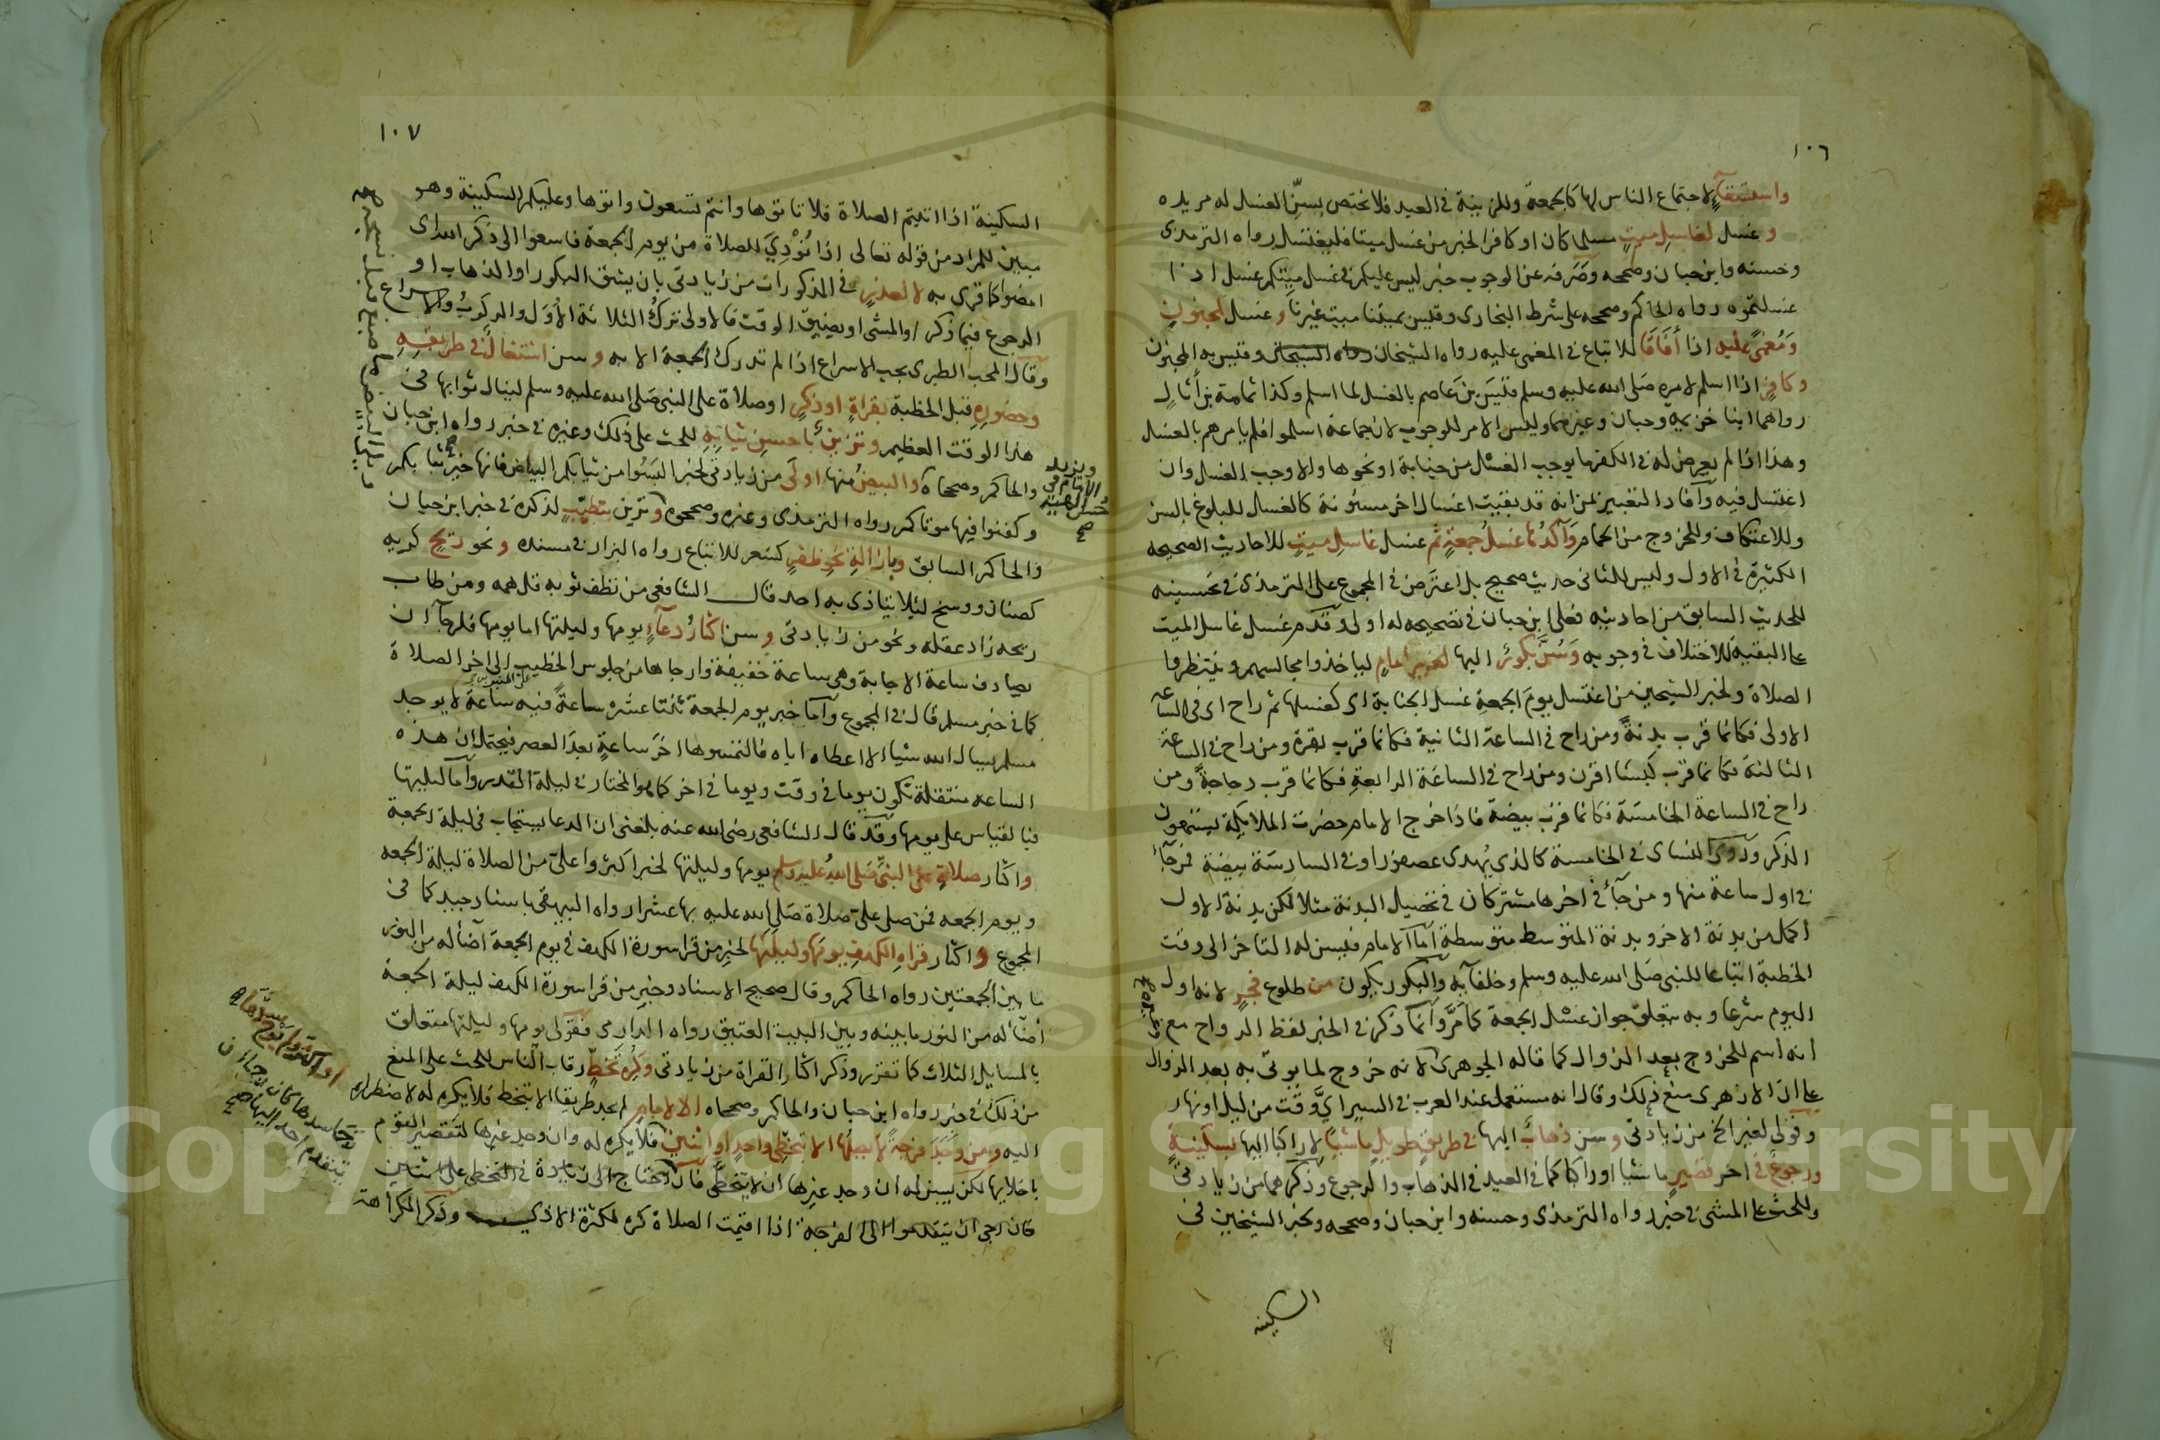 ١٠٦
واستسقاء لاجتماع الناس لها كالجمعة وللزينة في العيد فلا يختص بسن الغسل له مريده
و غسل لغاسل ميت مسلما كان او كافرا لخبر من غسل ميتا فليغتسل رواه الترمذي
وحسنه وابن حبان وصححه وصرفه عن الوجوب خبر ليس عليكم في غسل ميتكم غسل اذا
غسلتموه رواه الحاكم وصححه على شرط البخاري وقيس بميتنا ميت غيرنا و غسل لمجنون
ومغمى عليه اذا أفاقا للاتباع في المغمى عليه رواه الشيخان وقيس به المجنون
وكافر اذا اسلم لامره صلى الله عليه وسلم قيس بن عاصم بالغسل لما اسلم وكذا ثمامة بن أثال
رواهما ابنا خزيمة وحبان وغيرهما وليس الامر للوجوب لان جماعة اسلموا فلم يامرهم بالغسل
وهذا اذا لم يعرض له في الكفر ما يوجب الغسل من جنابة او نحوها والا وجب الغسل وان
اغتسل فيه وآفاد التعبير بمن انه قد بقيت اغسال اخر مسنونة كالغسل للبلوغ بالسن
وللاعتكاف وللخروج من الحمام وآكدها غسل جمعة ثم غسل غاسل ميت للاحاديث الصحيحه
الكثيرة في الاول وليس للثاني حديث صحيح بل اعترض في المجموع على الترمذي في تحسينه
للحديث السابق من احاديثه فعلى ابن حبان في تصحيحه له اولى وقدم غسل غاسل الميت
على البقية للاختلاف في وجوبه وسن بكور اليها لغير امام لياخذوا مجالسهم وينتظروا
الصلاة ولخبر الشيخين من اغتسل يوم الجمعة غسل الجنابة اي كغسلها ثم راح اي في الساعه
الاولى فكانما قرب بدنة ومن راح في الساعة الثانية فكانما قرب بقرة ومن راح في الساعة
الثالثة فكانما قرب كبشا اقرن ومن راح في الساعة الرابعة فكانما قرب دجاجة ومن
راح في الساعة الخامسة فكانما قرب بيضة فاذا خرج الامام حضرت الملايكة يستمعون
الذكر وروى النساي في الخامسة كالذي يهدى عصفورا وفي السادسة بيضة فمن جآ
في اول ساعة منها ومن جآ في اخرها مشتركان في تحصيل البدنة مثلا لكن بدنة الاول
اكمل من بدنة الاخر وبدنة المتوسط متوسطة آما الامام فيسن له التاخر الى وقت
الخطبة اتباعا للنبي صلى الله عليه وسلم وخلفآيه والبكور يكون من طلوع فجر لانه اول
اليوم شرعا وبه يتعلق جواز غسل الجمعة كما مر وانما ذكر في الخبر لفظ الرواح مع
انه اسم للخروج بعد الزوال كما قاله الجوهري لانه خروج لما يوتى به بعد الزوال
على ان الازهري منع ذلك وقال انه مستعمل عند العرب في السير اي وقت من ليل او نهار
وقولي لغير الخ من زيادتي و سن ذهاب اليها في طريق طويل ماشيا لا راكبا اليها بسكينة
ورجوع في اخر قصير ماشيا او راكبا كما في العيد في الذهاب والرجوع وذكرهما من زيادتي
وللحث على المشي في خبر رواه الترمذي وحسنه وابن حبان وصححه وبخبر الشيخين في
السكينة
١٠٧
السكينة اذا اتيتم الصلاة فلا تاتوها وانتم تسعون واتوها وعليكم السكينة وهو
مبين للمراد من قوله تعالى اذا نودي للصلاة من يوم الجمعة فاسعوا الى ذكر الله اي
امضوا كما قرى به لا لعذر في المذكورات من زيادتي بان يشق البكور او الذهاب او
الرجوع فيما ذكر او المشي او يضيق الوقت فالاولى ترك الثلاثة الاول والركوب والاسراع
وقال المحب الطبري يجب الاسراع اذا لم تدرك الجمعة الا به و سن اشتغال في طريقه
وحضوره قبل الخطبة بقراة او ذكر او صلاة على النبي صلى الله عليه وسلم لينال ثوابها في
هذا الوقت العظيم وتزين باحسن ثيابه للحث على ذلك وغيره في خبر رواه ابن حبان
والحاكم وصححاه والبيض منها اولى من زيادتي لخبر البسوا من ثيابكم البياض فانها خير ثيابكم
وكفنوا فيها موتاكم رواه الترمذي وغيره وصححوه وتزين بتطيب لذكره في خبر ابن حبان
والحاكم السابق وبازالة نحو ظفر كشعر للاتباع رواه البزار في مسنده و نحو ريح كريه
كصنان ووسخ ليلا يتاذى به احد قال الشافعي من نظف ثوبه قل همه ومن طاب
ريحه زاد عقله ونحو من زيادتي و سن اكثار دعآء يومها وليلتها اما يومها فلرجآ ان
يصادف ساعة الاجابة وهي ساعة خفيفة وارجاها من جلوس الخطيب الى اخر الصلاة
كما في خبر مسلم قال في المجموع وآما خبر يوم الجمعة ثنتا عشرة ساعة فيه ساعة لا يوجد
مسلم يسال الله شيا الا اعطاه اياه فالتمسوها اخر ساعة بعد العصر فيحتمل ان هذه
الساعه منتقلة تكون يوما في وقت ويوما في اخر كما هو المختار في ليلة القدر وآما ليلتها
فبالقياس على يومها وقد قال الشافعي رضي الله عنه بلغني ان الدعا يستجاب في ليلة الجمعة
واكثار صلاة على النبي صلى الله عليه وسلم يومها وليلتها لخبر اكثروا علي من الصلاة ليلة الجمعه
ويوم الجمعه فمن صلى علي صلاة صلى الله عليه بها عشرا رواه البيهقي باسناد جيد كما في
المجموع و اكثار قراة الكهف يومها وليلتها لخبر من قرا سورة الكهف في يوم الجمعة اضآ له من النور
ما بين الجمعتين رواه الحاكم وقال صحيح الاسناد وخبر من قرا سورة الكهف ليلة الجمعة
اضآ له من النور ما بينه وبين البيت العتيق رواه الدارمي فقولي يومها وليلتها متعلق
بالمسايل الثلاث كما تقرر وذكر اكثار القراة من زيادتي وكره تخط رقاب الناس للحث على المنع
من ذلك في خبر رواه ابن حبان والحاكم وصححاه الا لامام لم يجد طريقا الا بتخط فلا يكره له لاضطراره
اليه ومن وجد فرجة لا يصلها الا بتخطي واحد او اثنين فلا يكره له وان وجد غيرها لتقصير القوم
باخلايها لكن يسن له ان وجد غيرها ان لا يتخطى فان احتاج الى زيادة في التخطي على اثنين
فان رجى ان يتقدموا الى الفرجة اذا اقيمت الصلاة كره لكثرة الاذى وذكر الكراهة
ويزيد
الامام في
حسن الهيئة
صح
Copyright © King Saud University